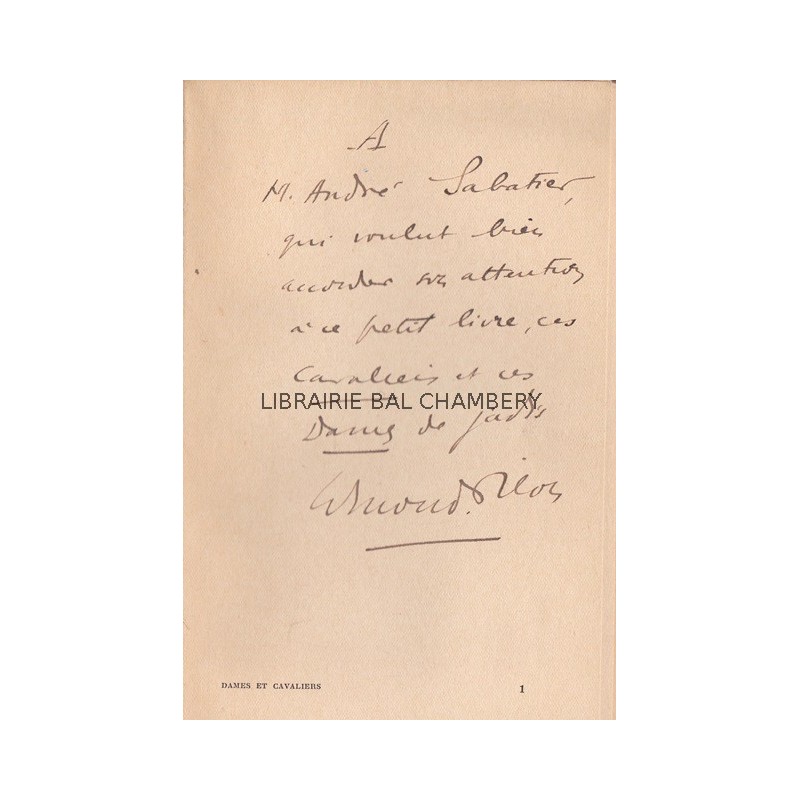 A
M. André Sabatier,
qui voulut bien
accorder son attention
à ce petit livre, ces
Cavaliers et ces
LIBRAIRIE BAL CHAMBERY
Dames de jadis
Edmond Pilon
DAMES ET CAVALIERS 1